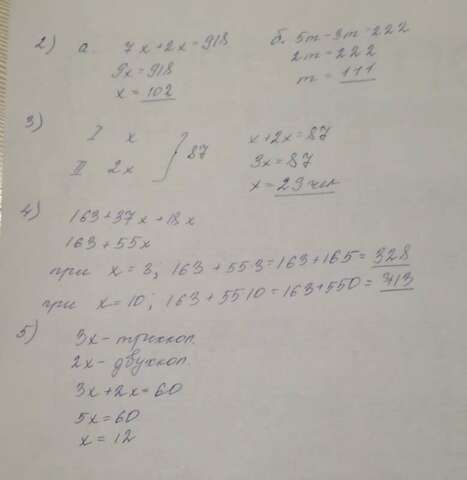 2) а. 7x+2x=918
9x=918
x=102
б. 5m-3m=222
2m=222
m=111
3) I x
II 2x } 87
x+2x=87
3x=87
x=29 чел
4) 163+37x+18x
163+55x
при x=3; 163+55·3=163+165=328
при x=10; 163+55·10=163+550=413
5) 3x-трехкоп.
2x-двухкоп.
3x+2x=60
5x=60
x=12